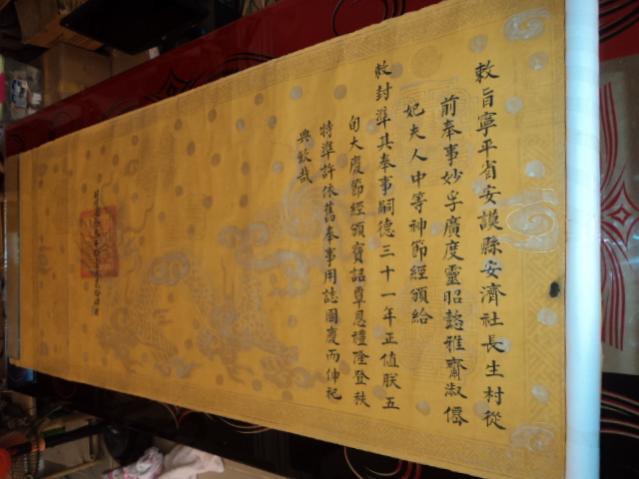 敕旨寧平省安謨縣安濟社長生村從
前奉事妙孚廣度靈昭懿雅齋淑僊
妃夫人中等神節經頒給
敕封準其奉事嗣德三十一年正値朕五
旬大慶節經頒寶詔覃恩禮隆登秩
特準許依舊奉事用誌國慶而伸祀
典欽哉